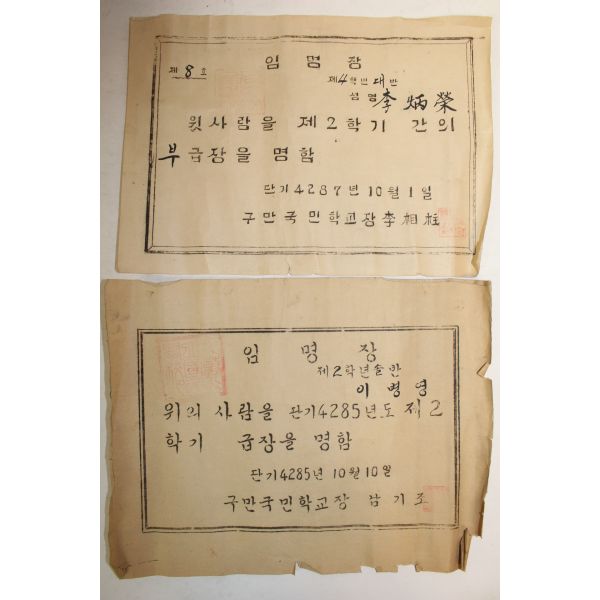 임명장
제8호
제4학년대반
성명 李炳榮
윗사람을 제2학기 간의
부급장을 명함
단기4287년10월1일
구만국민학교장李相柱
임명장
제2학년솔반
이병영
위의 사람을 단기4285년도 제2
학기 급장을 명함
단기4285년 10월10일
구만국민학교장 남기조